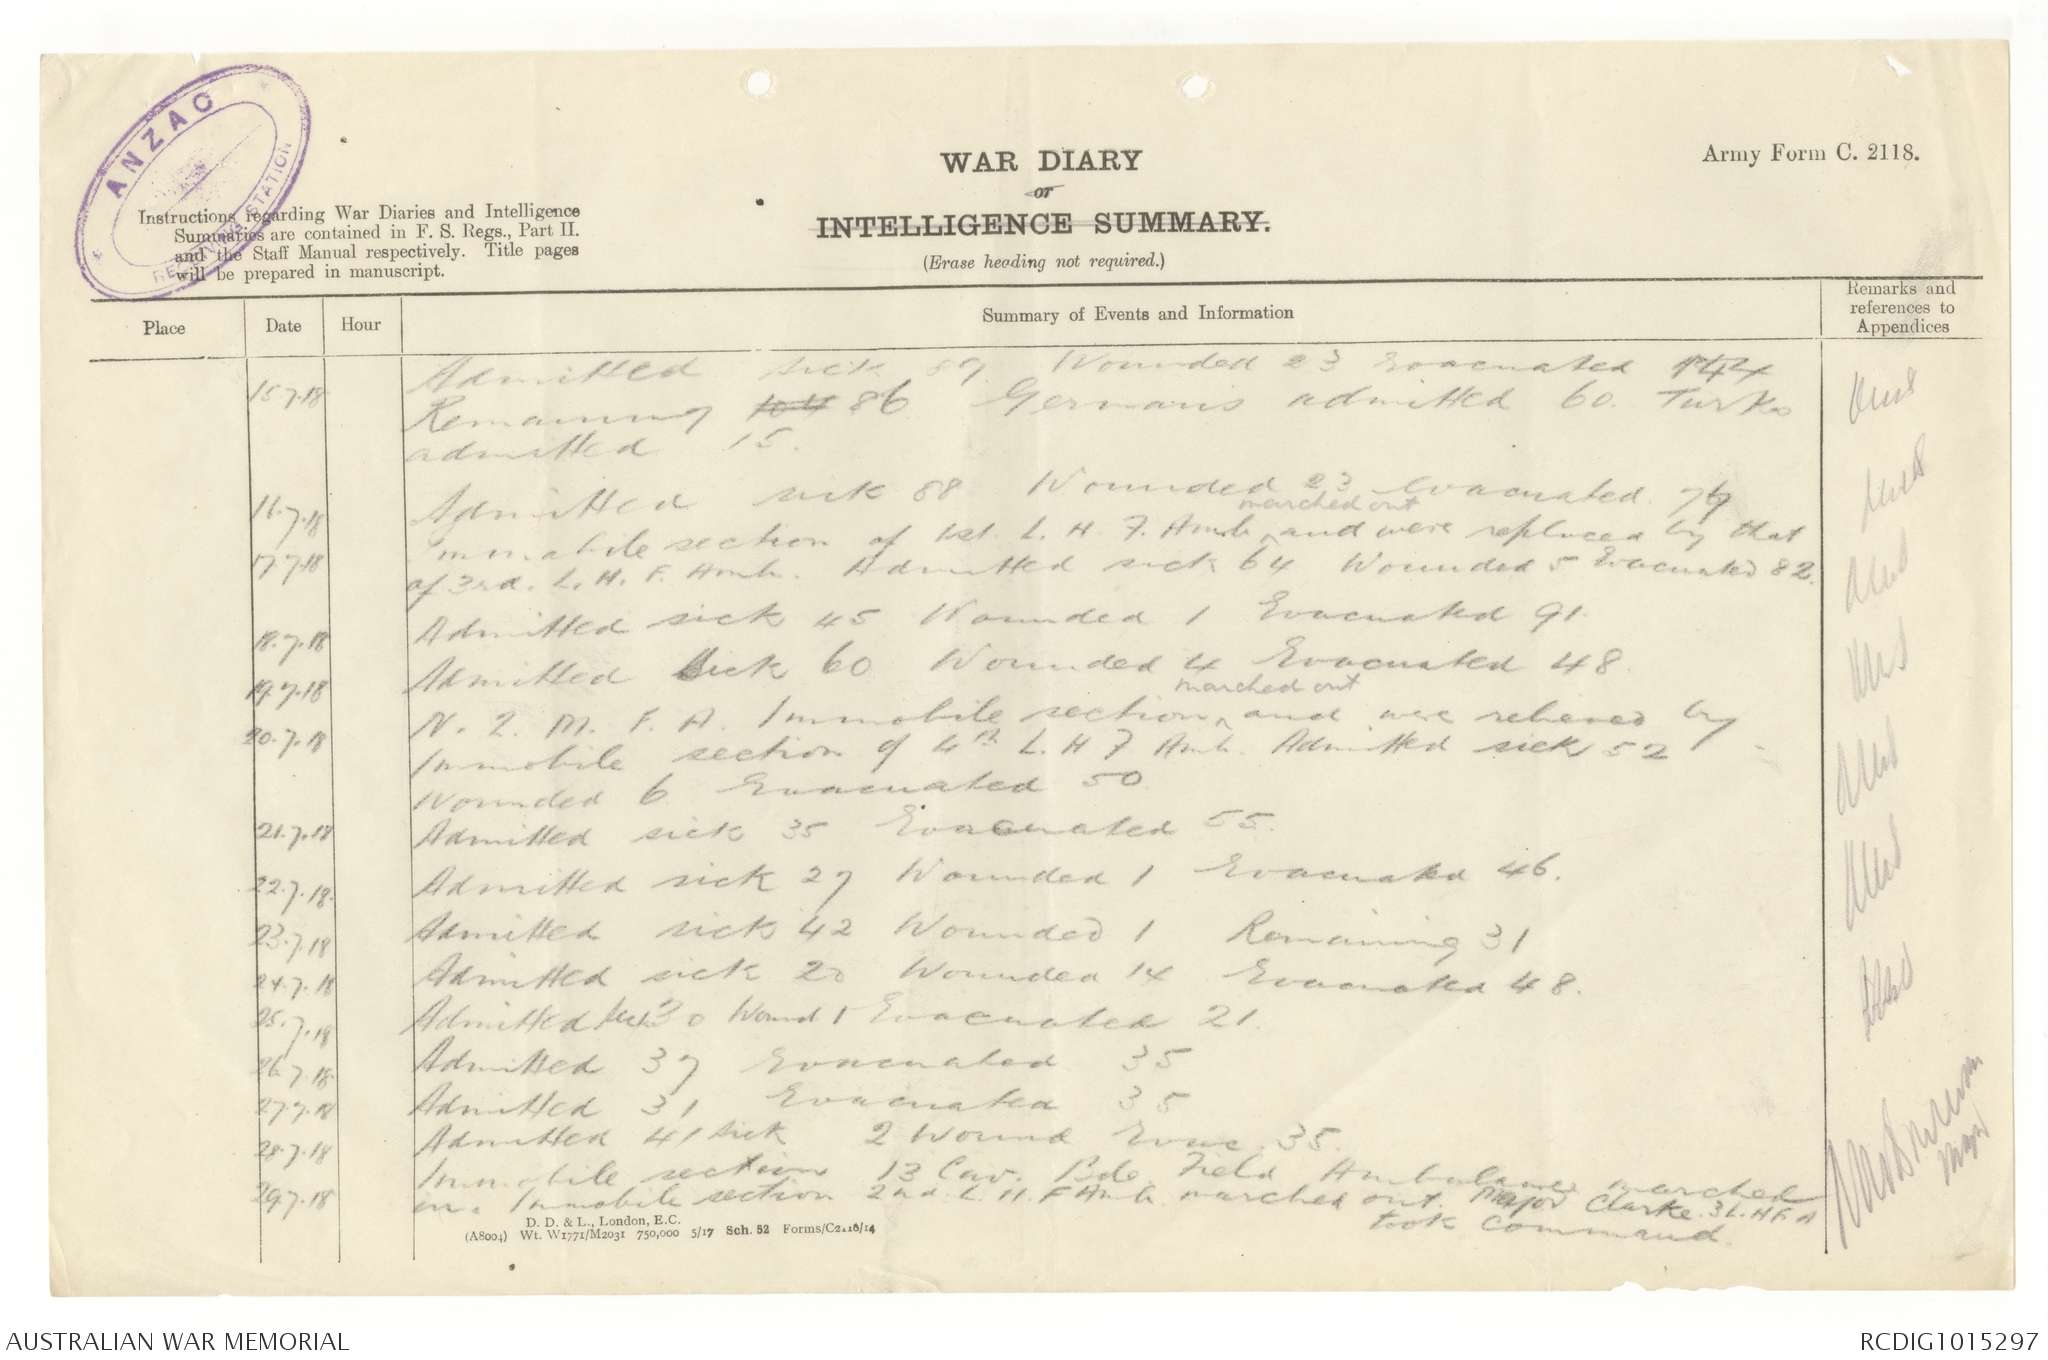 ANZAC
RECEIVING STATION
Army Form C. 2118.
WAR DIARY
or
INTELLIGENCE SUMMARY.
(Erase heading not required.)
Instructions regarding War Diaries and Intelligence
Summaries are contained in F. S. Regs., Part II.
and the Staff Manual respectively. Title pages
will be prepared in manuscript.
Place Date Hour Summary of Events and Information Remarks and references to Appendices
15.7.18 Admitted sick 87 Wounded 23 Evacuated 144
Remaining 104 86 Germans admitted 60. Turks
admitted 15.
16.7.18 Admitted sick 88 Wounded 23 Evacuated
marched out
17.7.18 Immobile section of 1st. L. H. F. Amb. ^ and were replaced by that
of 3rd. L. H. F. Amb. Admitted sick 64 Wounded 5 Evacuated 82.
18.7.18 Admitted sick 45 Wounded 1 Evacuated 91.
19.7.18 Admitted Sick 60 Wounded 4 Evacuated 48.
marched out
20.7.18 N. Z. M. F. A. Immobile section ^ and were relieved by
Immobile section of 4th L. H F Amb. Admitted sick 52
Wounded 6 Evacuated 50
21.7.18 Admitted sick 35 Evacuated 55.
22.7.18. Admitted sick 27 Wounded 1 Evacuated 46.
23.7.18 Admitted sick 42 Wounded 1 Remaining 31
24.7.18 Admitted sick 20 Wounded 14 Evacuated 48.
25.7.18 Admitted sick 30 Wound 1 Evacuated 21.
26.7.18. Admitted 37 Evacuated 35
27.7.18 Admitted 31 Evacuated 35
28.7.18 Admitted 41 sick 2 Wound Evac. 35.
29.7.18 Immobile section 13 Cav. Bde Field Ambulance marched
in. Immobile section 2nd L. H. F Amb. marched out. Major Clarke. 3 L. H F. A
took command.
Major
D. D. & L., London, E.C.
(A8004) Wt. W1771/M2031 750,000 5/17 Sch. 52 Forms/C2118/14
AUSTRALIAN WAR MEMORIAL
RCDIG1015297